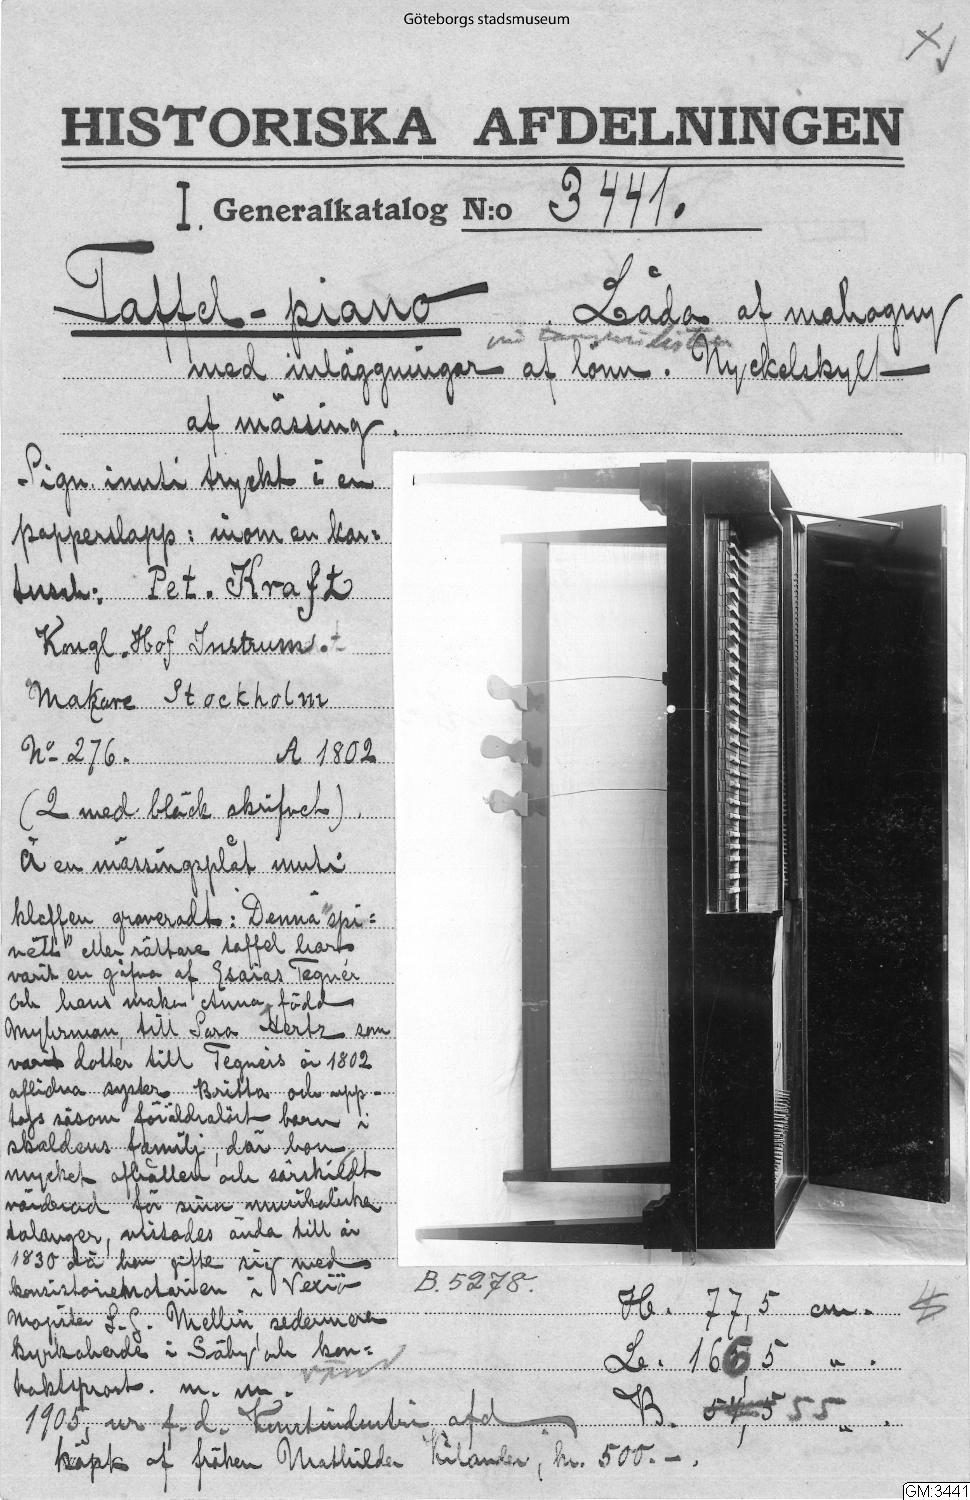 Göteborgs stadsmuseum
HISTORISKA AFDELNINGEN
I. Generalkatalog N:o 3441.
Taffel-piano. Låda af mahogny
med inläggningar af lönn. Nyckelskylt
af mässing.
Sign. inuti tryckt i en
papperslapp: inom en kar=
tusch: Pet. Kraft
Kongl. Hof Instrum.t
Makare Stockholm
No 276. A 1802
(2 med bläck skrifvet).
Å en mässingsplåt inuti
klaffen graveradt: Denna "spi=
nett" eller rättare taffel har
varit en gåfva af Esaias Tegnér
och hans maka Anna, född
Myhrman, till Sara Hertz som
varit dotter till Tegnérs år 1802
aflidna syster Britta och upp-
togs såsom föräldralöst barn i
skaldens familj, där hon,
mycket afhållen och särskildt
värderad för sina musikaliska
talanger, vistades ända till år
1830 då hon gifte sig med
konsistorienotarien i Vexiö
Magister L. G. Mellin, sedermera
kyrkoherde i Säby och kon=
traktsprost. m. m.
vänd
B. 5278.
H. 77,5 cm.
L. 166,5 " .
B. 54,5 55 " .
1905, ur f. d. Konstindustri afd
köpt af fröken Mathilda Kilander, kr. 500.-.
GM:3441